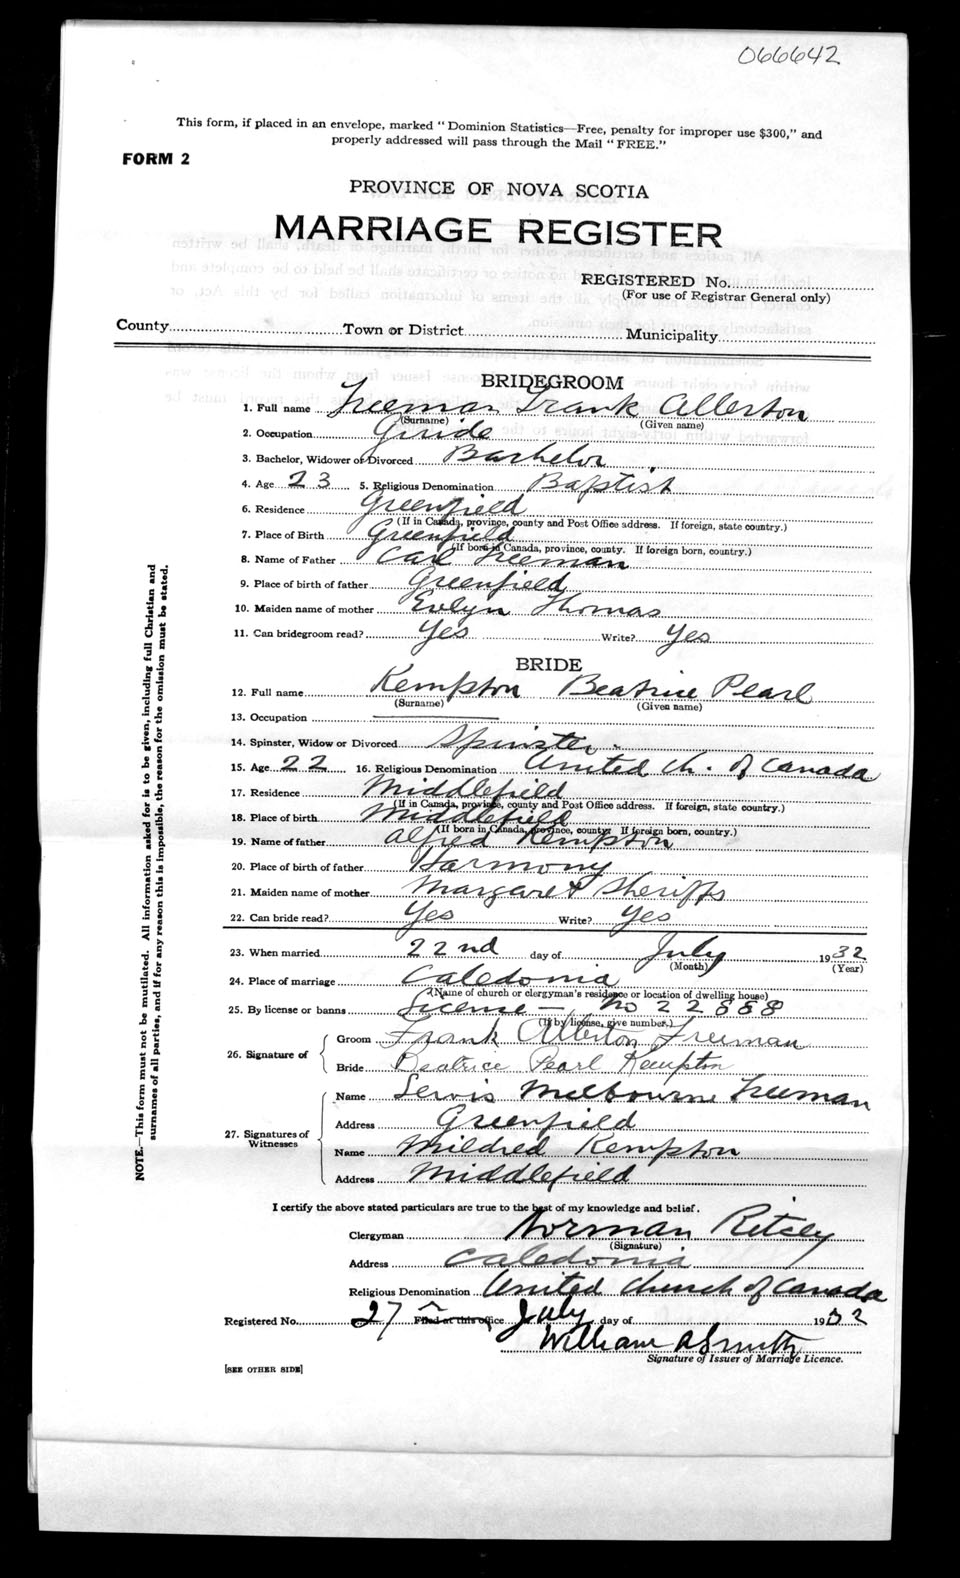 066642
This form, if placed in an envelope, marked "Dominion Statistics—Free, penalty for improper use $300," and
properly addressed will pass through the Mail "FREE."
FORM 2
PROVINCE OF NOVA SCOTIA
MARRIAGE REGISTER
REGISTERED No.
(For use of Registrar General only)
County Town or District Municipality
BRIDEGROOM
1. Full name Freeman Frank Allerton
(Surname) (Given name)
2. Occupation Guide
3. Bachelor, Widower or Divorced Bachelor
4. Age 23 5. Religious Denomination Baptist
6. Residence Greenfield
(If in Canada, province, county and Post Office address. If foreign, state country.)
7. Place of Birth Greenfield
(If born in Canada, province, county. If foreign born, country.)
8. Name of Father Carl Freeman
9. Place of birth of father Greenfield
10. Maiden name of mother Evlyn Thomas
11. Can bridegroom read? Yes Write? Yes
BRIDE
12. Full name Kempton Beatrice Pearl
(Surname) (Given name)
13. Occupation
14. Spinster, Widow or Divorced Spinster
15. Age 22 16. Religious Denomination United Ch. of Canada
17. Residence Middlefield
(If in Canada, province, county and Post Office address. If foreign, state country.)
18. Place of birth Middlefield
(If born in Canada, province, county. If foreign born, country.)
19. Name of father Alfred Kempton
20. Place of birth of father Harmony
21. Maiden name of mother Margaret Sheriffs
22. Can bride read? Yes Write? Yes
23. When married 22nd day of July 1932
(Month) (Year)
24. Place of marriage Caledonia
(Name of church or clergyman's residence or location of dwelling house)
25. By license or banns License — No 22888
(If by license, give number.)
26. Signature of Groom Frank Allerton Freeman
Bride Beatrice Pearl Kempton
27. Signatures of Witnesses
Name Lewis Melbourne Freeman
Address Greenfield
Name Mildred Kempton
Address Middlefield
I certify the above stated particulars are true to the best of my knowledge and belief.
Clergyman Norman Ritcey
(Signature)
Address Caledonia
Religious Denomination United Church of Canada
Registered No. 27 Filed at this office July day of 1932
William A Smith
Signature of Issuer of Marriage Licence.
[SEE OTHER SIDE]
NOTE.—This form must not be mutilated. All information asked for is to be given, including full Christian and
surnames of all parties, and if for any reason this is impossible, the reason for the omission must be stated.